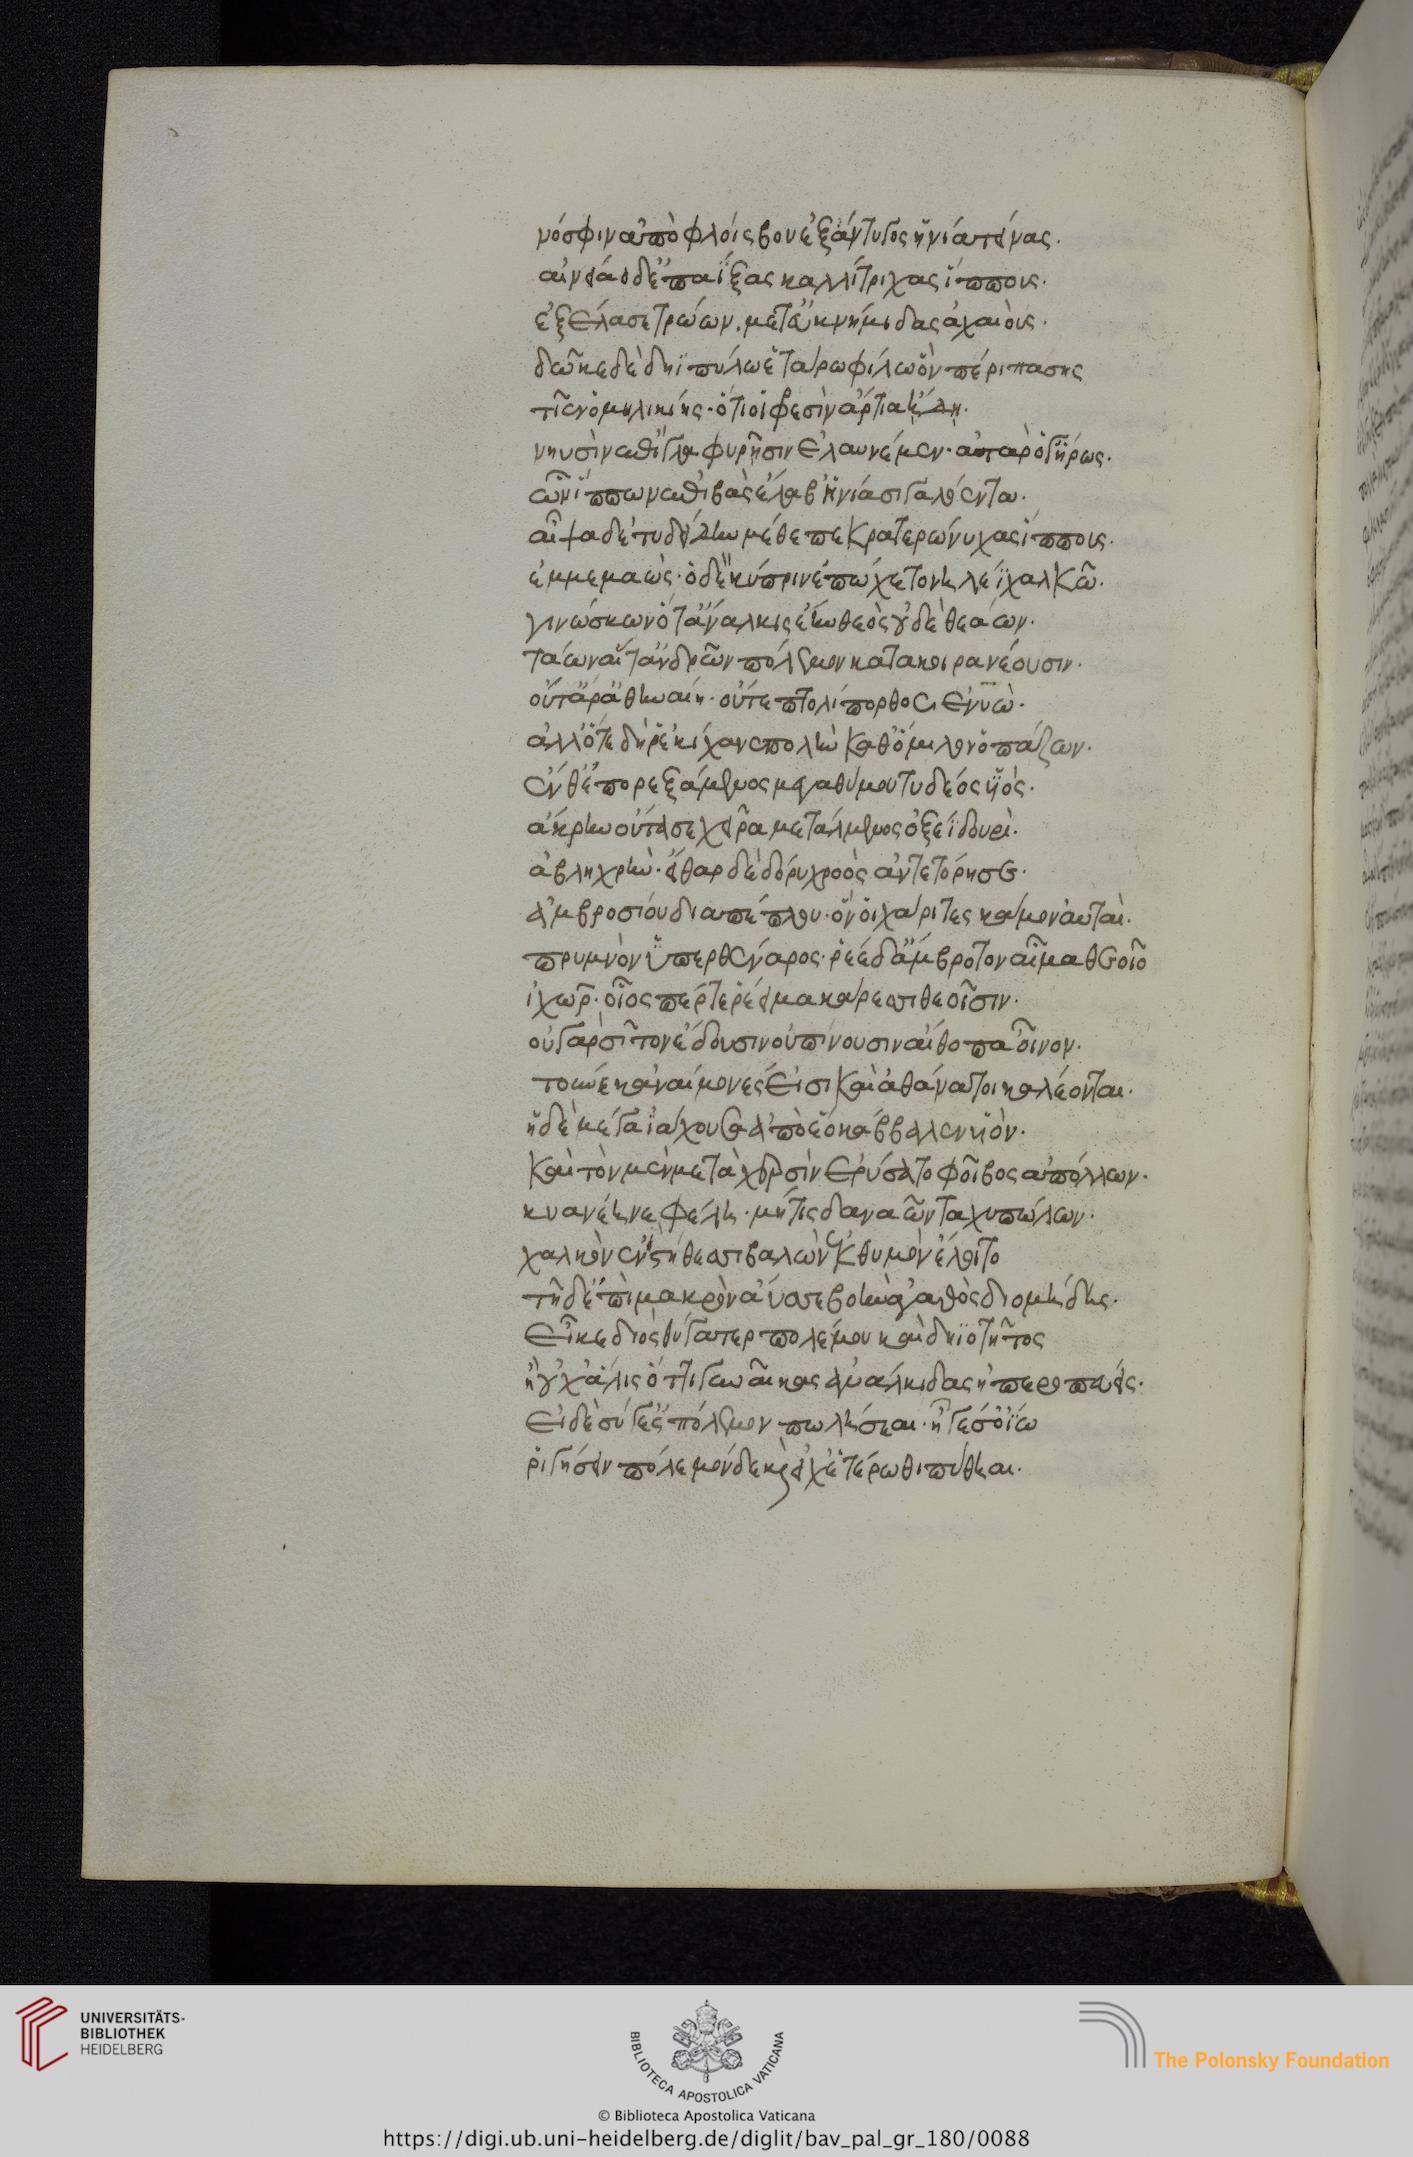 νόσφιν ἀπὸ φλοίσβου ἐξ ἄντυγος ἡνία τείνας.
αἰνείαο δ' ἐπαΐξας καλλίτριχας ἵππους.
ἐξέλασε τρώων. μετ' ἐϋκνήμιδας ἀχαιοὺς.
δῶκε δὲ δηϊπύλω ἑτάρω φίλω ὃν πέρι πάσης
τῖεν ὁμηλικίης. ὅτι οἱ φρεσὶν ἄρτια ἤδη.
νηυσὶν ἔπι γλαφυρῆσιν ἐλαυνέμεν. αὐτὰρ ὅ γ' ἥρως.
ὧν ἵππων ἐπιβὰς ἔλαβ' ἡνία σιγαλόεντα.
αἶψα δὲ τυδείδην μέθεπε κρατερώνυχας ἵππους.
ἐμμεμαώς. ὁ δὲ κύπριν ἐπώχετο νηλέϊ χαλκῶ.
γινώσκων ὅτ' ἄναλκις ἔην θεὸς οὐδὲ θεάων.
τάων αἵ τ' ἀνδρῶν πόλεμον κατακοιρανέουσιν.
οὔτ' ἄρ' ἀθηναίη. οὔτε πτολίπορθος ἐνυώ.
ἀλλ' ὅτε δή ῥ' ἐκίχανε πολὺν καθ' ὅμιλον ὀπάζων.
ἔνθ' ἐπορεξάμενος μεγαθύμου τυδέος υἱὸς.
ἄκρην οὔτασε χεῖρα μετάλμενος ὀξέϊ δουρὶ.
ἀβληχρήν. εἶθαρ δὲ δόρυ χροὸς ἀντετόρησεν.
ἀμβροσίου διὰ πέπλου. ὅν οἱ χάριτες κάμον αὐταὶ.
πρυμνὸν ὕπερ θέναρος. ῥέε δ' ἄμβροτον αἷμα θεοῖο
ἰχώρ. οἷός πέρ τε ῥέει μακάρεσσι θεοῖσιν.
οὐ γὰρ σῖτον ἔδουσιν οὐ πίνουσιν αἴθοπα οἶνον.
τοὔνεκ' ἀναίμονές εἰσι καὶ ἀθάνατοι καλέονται.
ἡ δὲ μέγα ἰάχουσα ἀπὸ ἕο κάββαλεν υἱὸν.
καὶ τὸν μὲν μετὰ χερσὶν ἐρύσατο φοῖβος ἀπόλλων.
κυανέη νεφέλη. μή τις δαναῶν ταχυπώλων.
χαλκὸν ἐνὶ στήθεσσι βαλὼν ἐκ θυμὸν ἕλοιτο
τῆ δ' ἐπὶ μακρὸν ἄϋσε βοὴν ἀγαθὸς διομήδης.
εἶκε διὸς θύγατερ πολέμου καὶ δηϊοτῆτος
ἢ οὐχ ἅλις ὅττι γυναῖκας ἀνάλκιδας ἠπεροπεύεις.
εἰ δὲ σύ γ' ἐς πόλεμον πωλήσεαι. ἦ τέ σ' ὀΐω
ῥιγήσειν πόλεμόν δε καὶ εἴ χ' ἑτέρωθι πύθηαι.
UNIVERSITÄTS-
BIBLIOTHEK
HEIDELBERG
BIBLIOTECA APOSTOLICA VATICANA
The Polonsky Foundation
© Biblioteca Apostolica Vaticana
https://digi.ub.uni-heidelberg.de/diglit/bav_pal_gr_180/0088